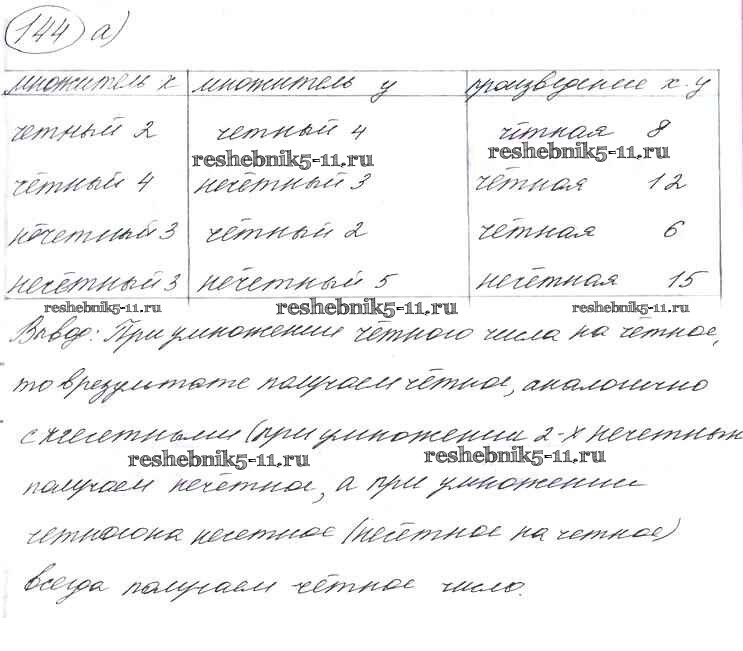 144 а)
множитель х множитель у произведение х·у
четный 2 четный 4 чётная 8
reshebnik5-11.ru reshebnik5-11.ru
чётный 4 нечётный 3 чётная 12
нечетный 3 чётный 2 чётная 6
нечётный 3 нечетный 5 нечётная 15
reshebnik5-11.ru reshebnik5-11.ru reshebnik5-11.ru
Вывод: При умножении чётного числа на четное,
то в результате получаем чётное, аналогично
с нечетными (при умножении 2-х нечетных
reshebnik5-11.ru reshebnik5-11.ru
получаем нечётное, а при умножении
четного на нечетное (нечётное на четное)
всегда получаем чётное число.